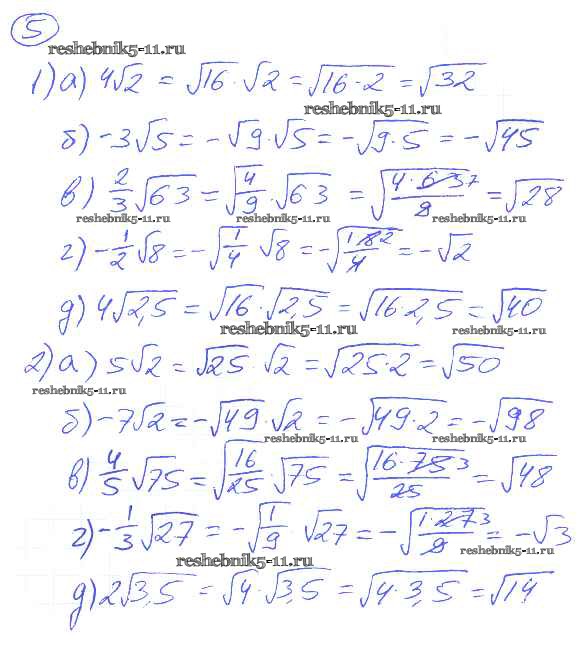 5
reshebnik5-11.ru
1) а) 4√2 = √16 · √2 = √16·2 = √32
reshebnik5-11.ru
б) -3√5 = -√9 · √5 = -√9·5 = -√45
в) 2/3 √63 = √4/9 · √63 = √4·63 7/9 = √28
reshebnik5-11.ru reshebnik5-11.ru reshebnik5-11.ru
г) -1/2 √8 = -√1/4 √8 = -√1·8 2/4 = -√2
д) 4√2,5 = √16 · √2,5 = √16·2,5 = √40
reshebnik5-11.ru reshebnik5-11.ru
2) а) 5√2 = √25 · √2 = √25·2 = √50
reshebnik5-11.ru
б) -7√2 = -√49 · √2 = -√49·2 = -√98
reshebnik5-11.ru reshebnik5-11.ru
в) 4/5 √75 = √16/25 · √75 = √16·75 3/25 = √48
г) -1/3 √27 = -√1/9 · √27 = -√1·27 3/9 = -√3
reshebnik5-11.ru reshebnik5-11.ru
д) 2√3,5 = √4 · √3,5 = √4·3,5 = √14